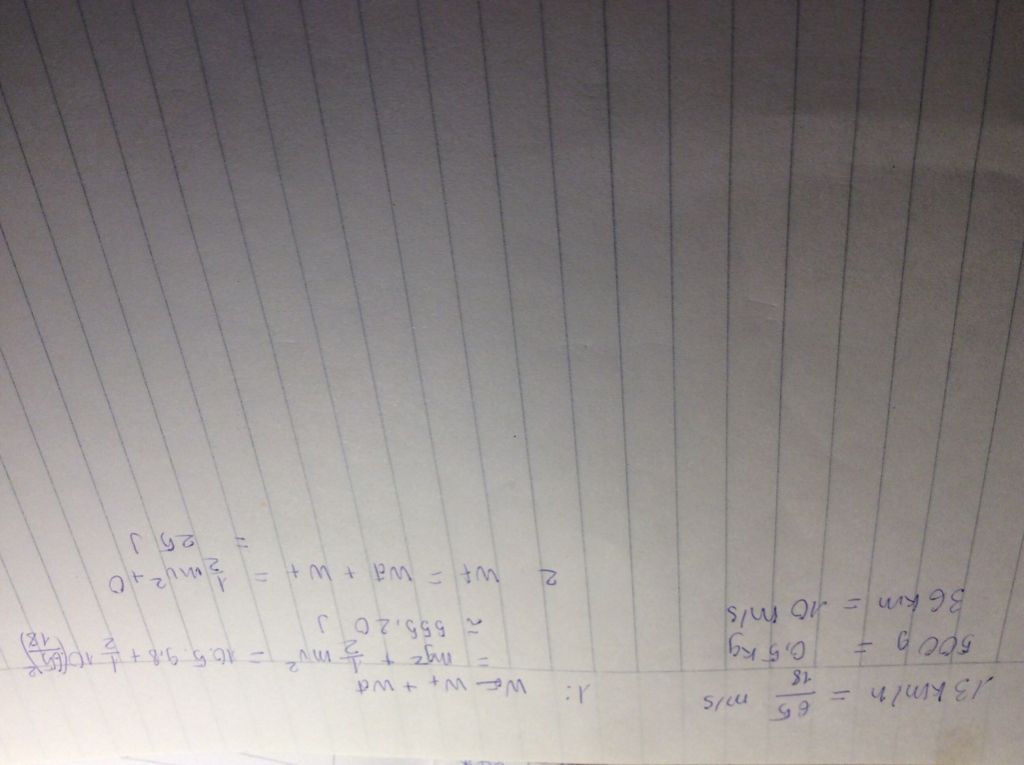 13 km/h = 65/18 m/s
500 g = 0,5 kg
36 km = 10 m/s
1: W = Wt + Wđ
= mgz + 1/2 mv² = 10.5.9.8 + 1/2 10 (65/18)²
≈ 555,20 J
2 Wt = Wđ + Wt = 1/2 mv² + 0
= 25 J